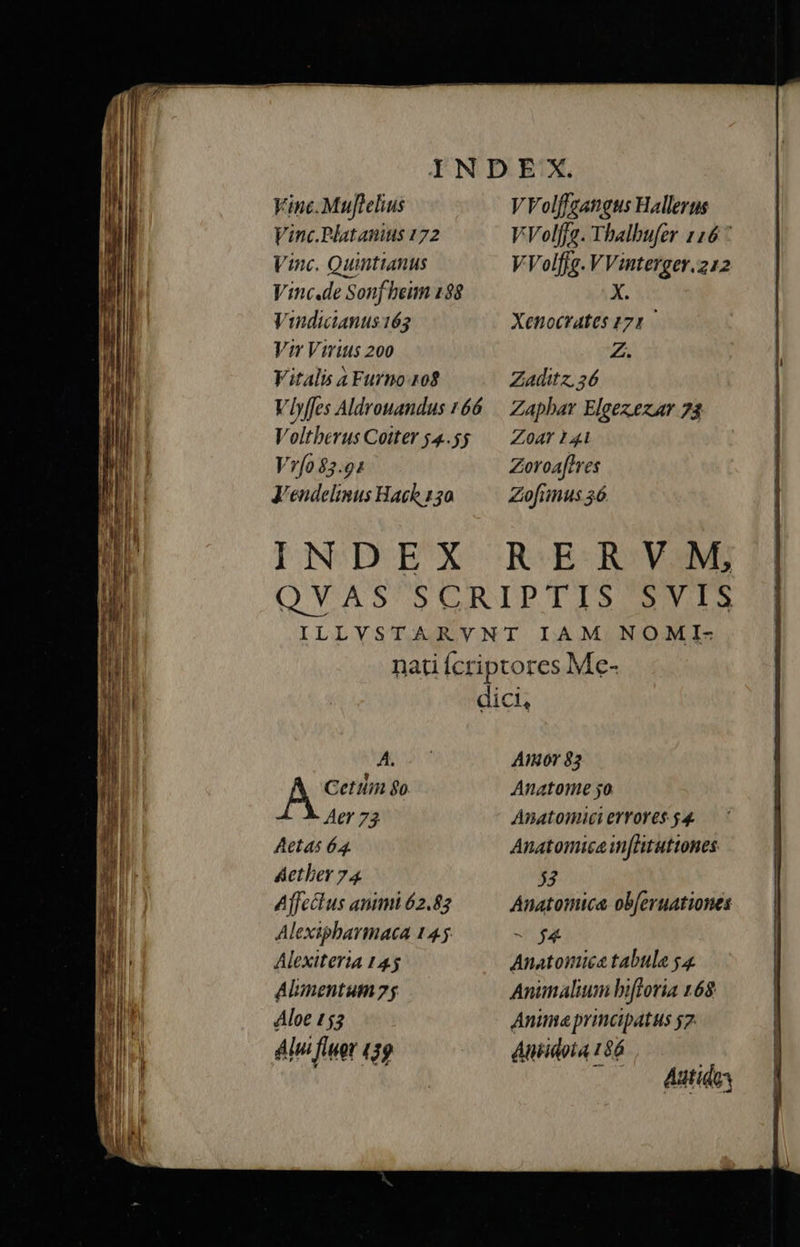 INDEX.
Vinc. Muſtelius
Vinc. Platanius 172
Vinc. Quintianus
Vinc. de Sonſheim 188
Vindicianus 163
Vir Virius 200
Vitalis à Furno 108
Vlyſſes Aldrouandus 166
Voltherus Coiter 54.55
Vrſo 83.91
Vendelinus Hack 130
VVolffgangus Hallerus
VVolffg. Thalhuſer 116
VVolffg. VVinterger. 212
X.
Xenocrates 171
Z.
Zaditz 36
Zaphar Elgezezar 73
Zoar 141
Zoroaſtres
Zoſimus 36
INDEX RERVM,
QVAS SCRIPTIS SVIS
ILLVSTARVNT IAM NOMI-
nati ſcriptores Me-
dici,
A.
ACetum 80
Aer 73
Aetas 64
Aether 74
Affectus animi 62.83
Alexipharmaca 145
Alexiteria 145
Alimentum 75
Aloe 153
Alui fluor 139
Amor 83
Anatome 50
Anatomici errores 54
Anatomicæ inſtitutiones
53
Anatomicæ obſeruationes
54
Anatomicæ tabulæ 54
Animalium hiſtoria 168
Animæ principatus 57
Antidota 186
Antidos